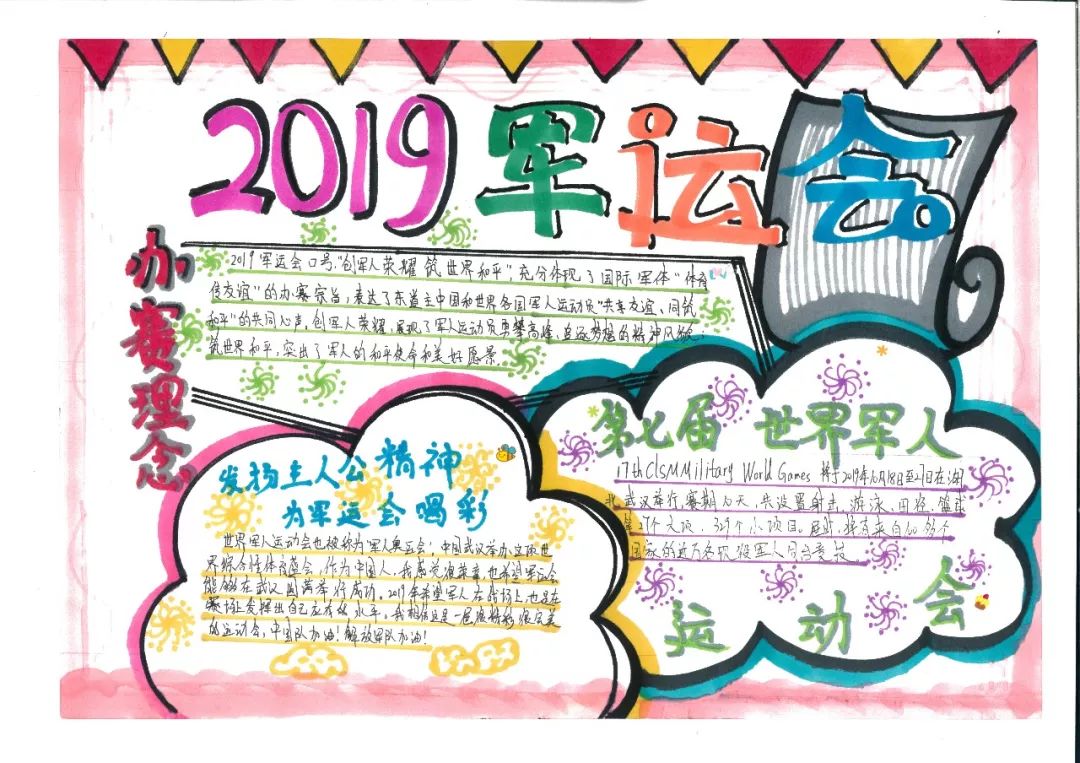 2019军运会
办赛理念
2019军运会口号:"创军人荣耀 筑世界和平",充分体现了国际军体"体育
传友谊"的办赛宗旨,表达了东道主中国和世界各国军人运动员"共享友谊,同筑
和平"的共同心声。创军人荣耀,展现了军人运动员勇攀高峰,追逐梦想的精神风貌。
筑世界和平,突出了军人的和平使命和美好愿景
发扬主人公精神
为军运会喝彩
世界军人运动会也被称为"军人奥运会",中国武汉举办这项世
界综合性体育盛会,作为中国人,我感觉很荣幸,也希望军运会
能够在武汉圆满举行成功,2019年希望军人在战场上也是在
赛场上发挥出自己应有的水平,我相信这是一届很精彩很完美
的运动会,中国队加油!解放军队加油!
第七届 世界军人
17th CISM Military World Games 将于2019年10月18日至27日在湖
北武汉举行,赛期10天,共设置射击、游泳、田径、篮球
等27个大项、329个小项目。届时,将有来自100多个
国家的近万名现役军人同台竞技
运动会